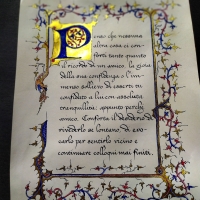 Penso che nessuna
altra cosa ci con-
forti tanto quanto
il ricordo di un amico, la gioia
della sua confidenza o l'im-
menso sollievo di esserti tu
confidato a lui con assoluta
tranquillità: appunto perché
amico. Conforta il desiderio di
rivederlo se lontano, di evo-
carlo per sentirlo vicino e
continuare colloqui mai finiti.